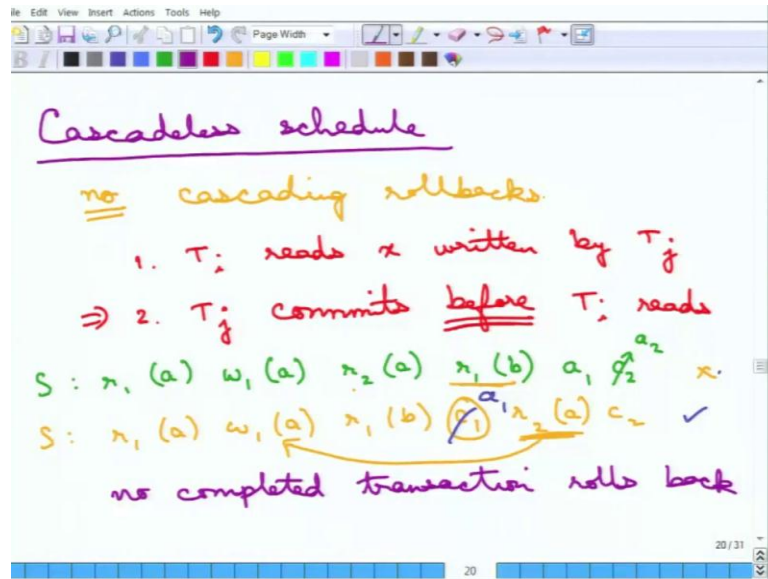 le Edit View Insert Actions Tools Help
Page Width
B I
Cascadeless schedule
no cascading rollbacks.
1. Ti reads x written by Tj
⇒ 2. Tj commits before Ti reads
S : r1 (a) w1 (a) r2 (a) r1 (b) a1 c2 a2 x.
S : r1 (a) w1 (a) r1 (b) c1 a1 r2 (a) c2 ✓
no completed transaction rolls back
20 / 31
20